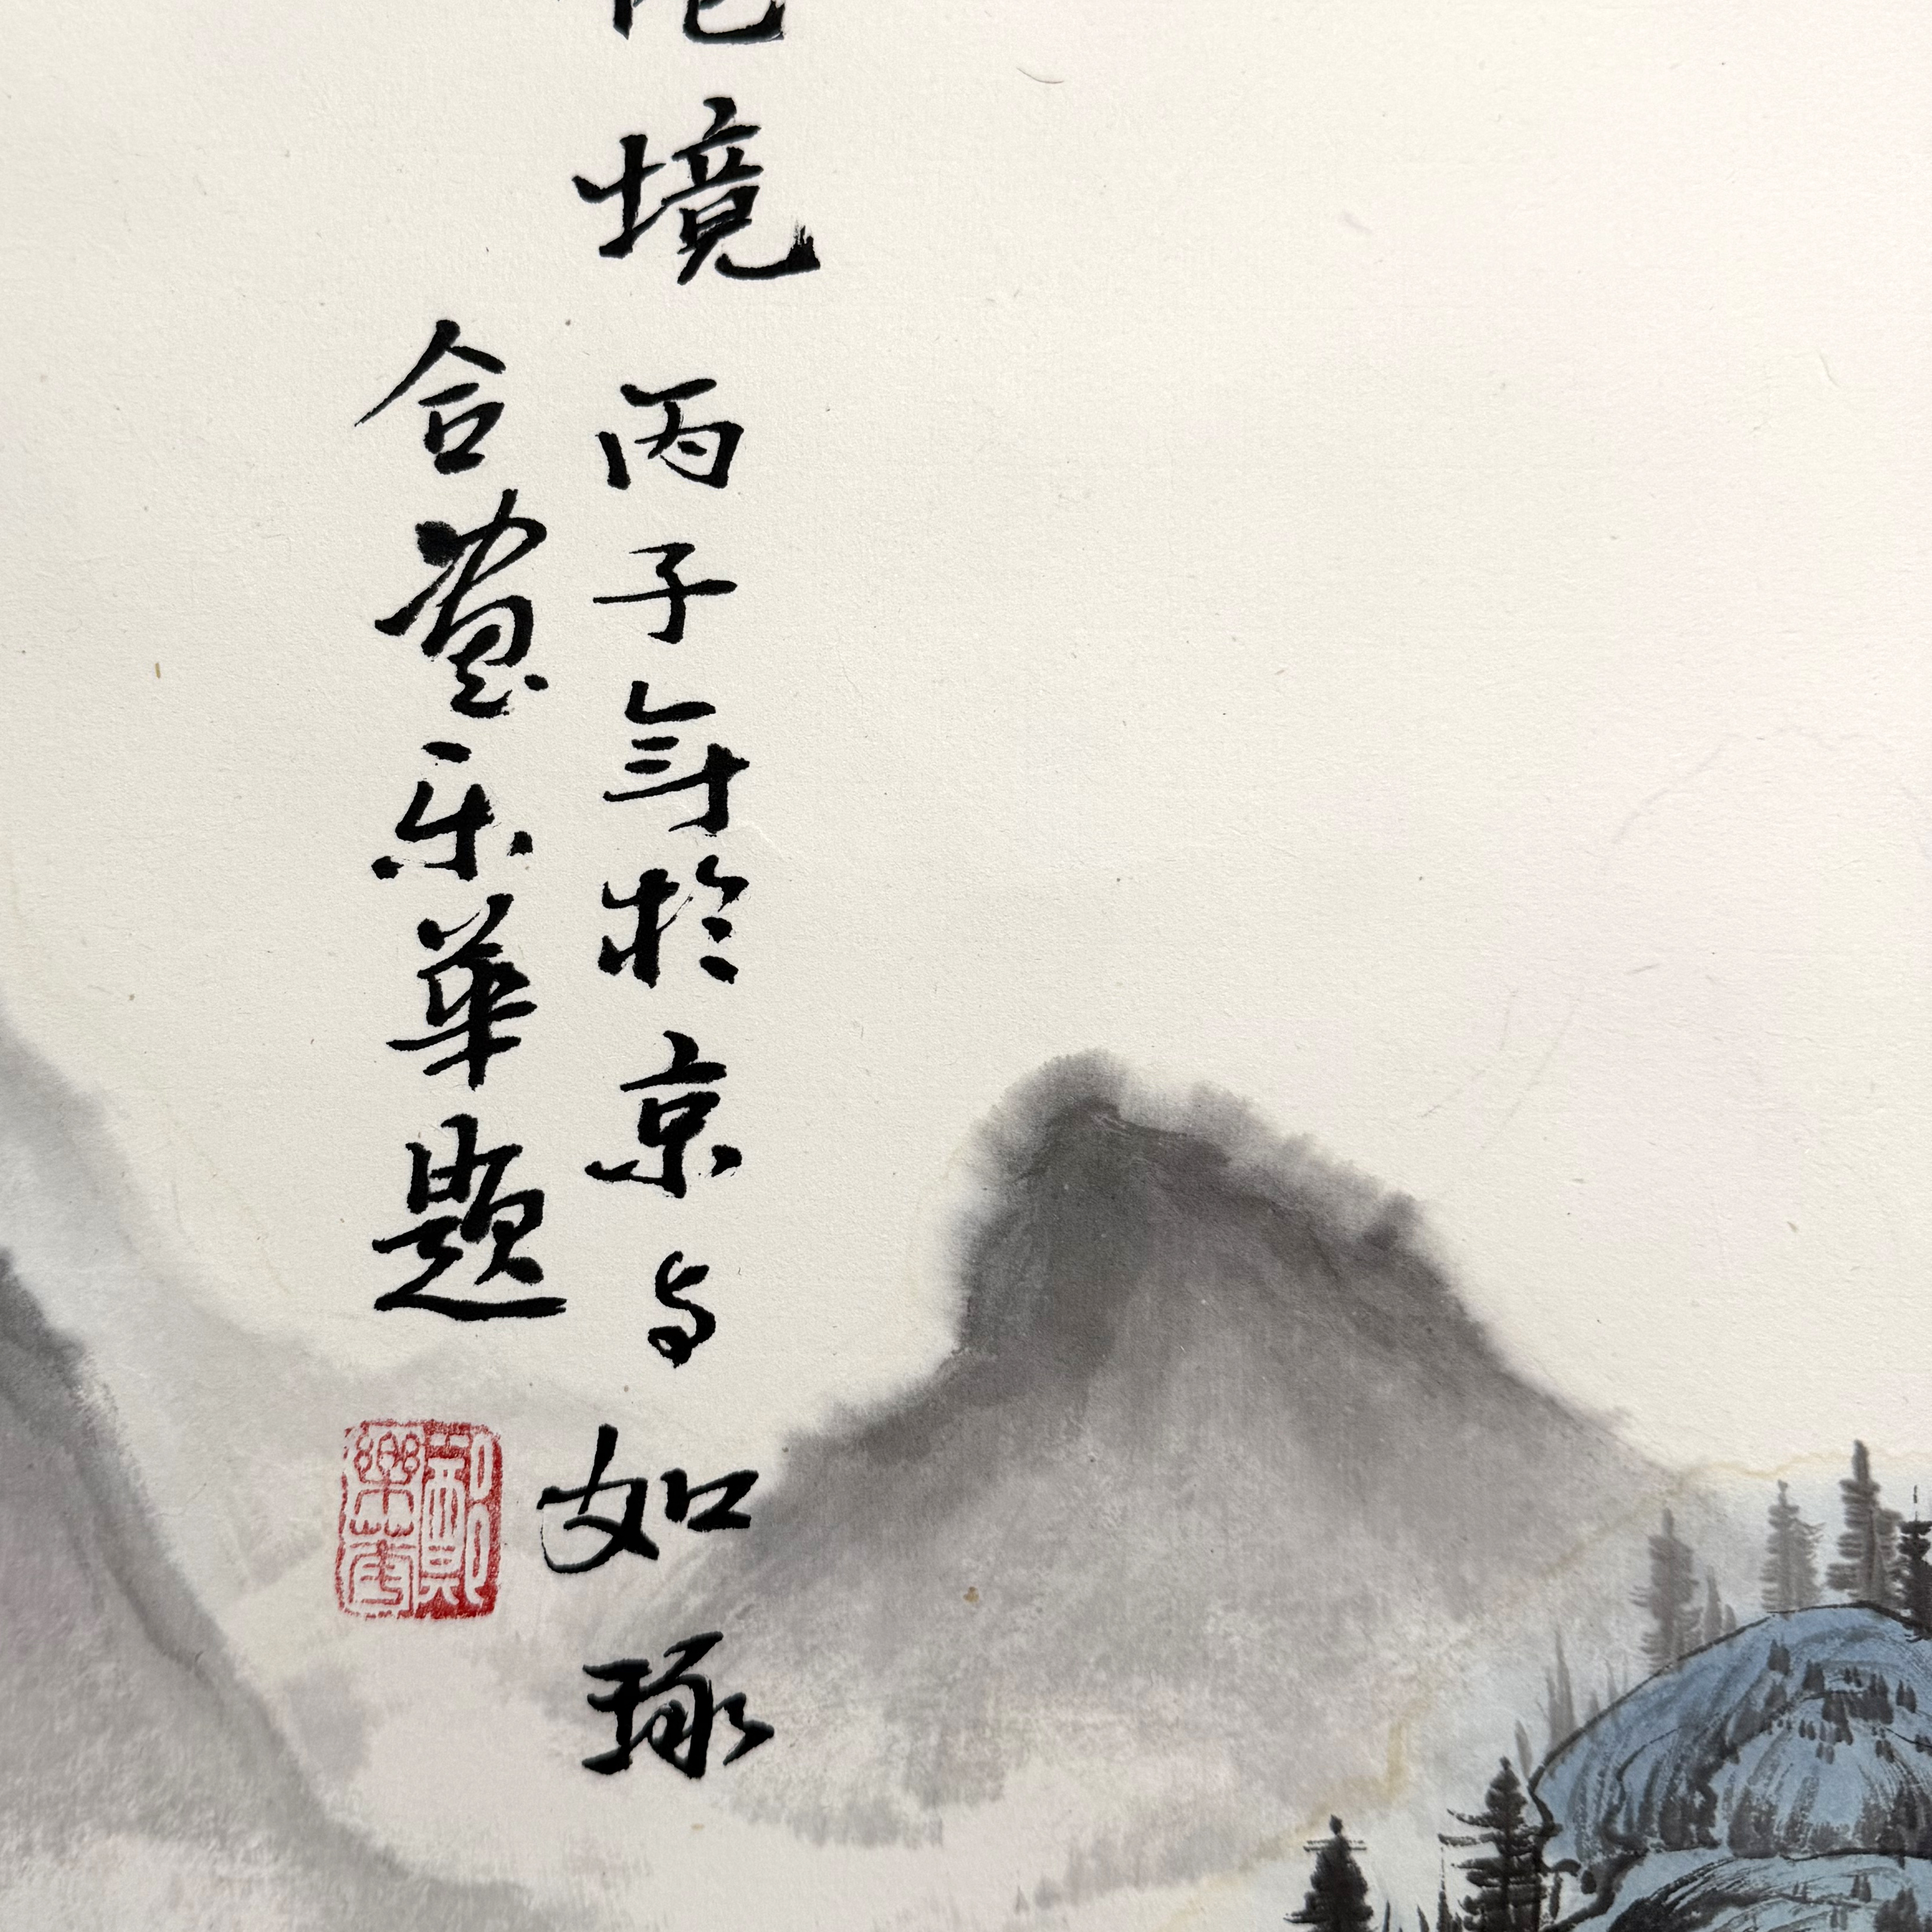 境 丙子年於京与如琢
合畫乐華題
郭樂華